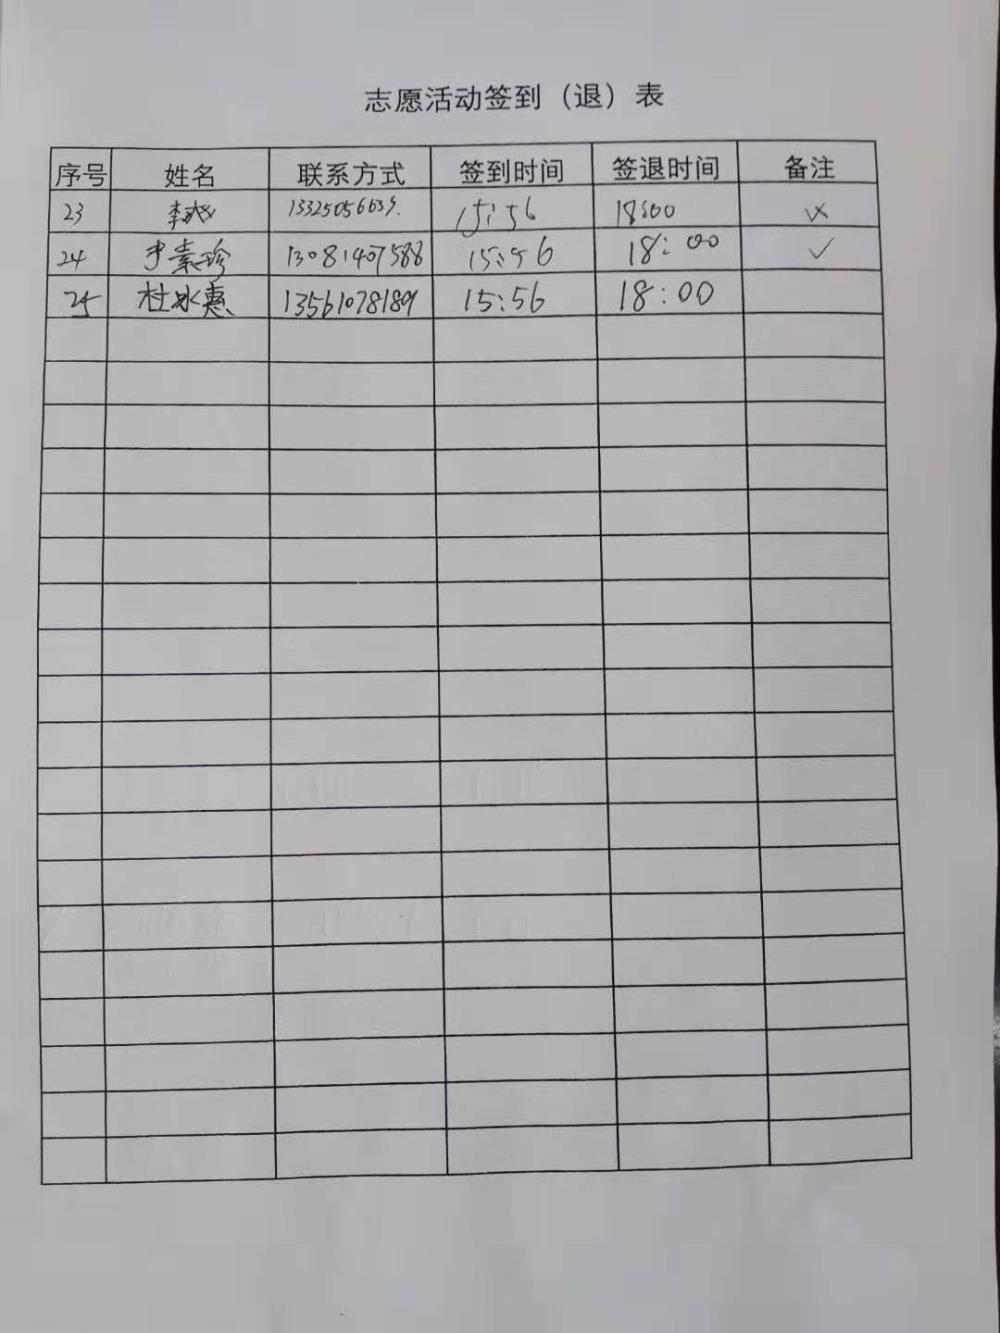 志愿活动签到（退）表
序号 姓名 联系方式 签到时间 签退时间 备注
23 李 15:56 18:00
24 尹素珍 13081407588 15:56 18:00 ✓
25 杜冰惠 13561078180 15:56 18:00